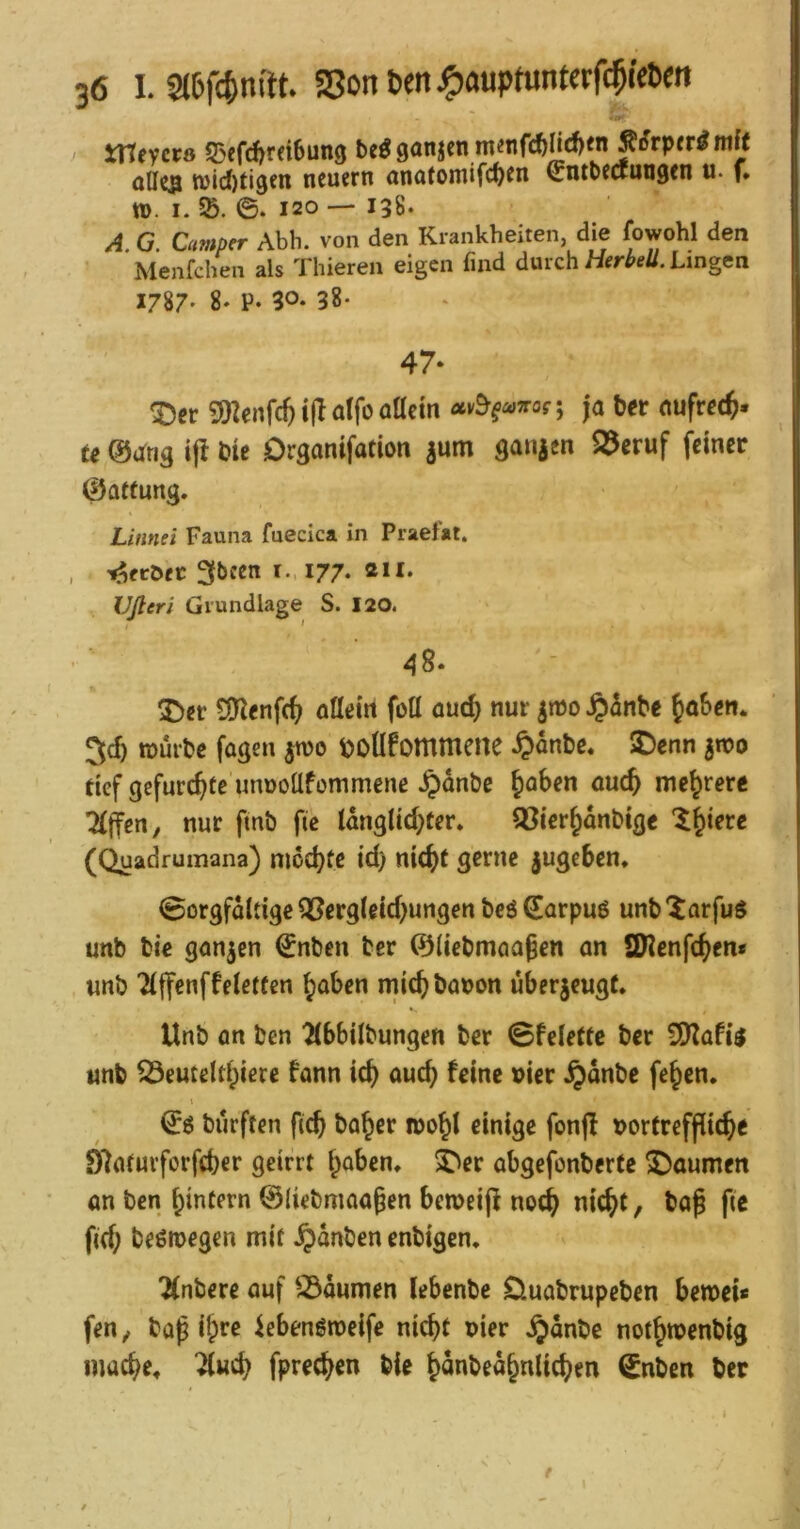 36 I. Abschnitt. Von den Hauptunterschieden
Meyers Beschreibung des ganzen menschlichen Körpers mit
allen wichtigen neuern anatomischen Entdeckungen u. s.
w. 1. B. S. 120 — 138.
A. G. Camper Abh. von den Krankheiten, die sowohl den
Menschen als Thieren eigen sind durch Herbell. Lingen
1787. 8. p. 30. 38.
47.
Der Mensch ist also allein ανθρωπος; ja der aufrech-
te Gang ist die Organisation zum ganzen Beruf seiner
Gattung.
Linnei Fauna suecica in Praefat.
Herder Ideen 1. 177. 211.
Usteri Grundlage S. 120.
48.
Der Mensch allein soll auch nur zwo Hände haben.
Ich würde sagen zwo vollkommene Hände. Denn zwo
tief gefurchte unvollkommene Hände haben auch mehrere
Affen, nur sind sie länglichter. Vierhändige Thiere
(Quadrumana) möchte ich nicht gerne zugeben.
Sorgfältige Vergleichungen des Carpus und Tarsus
und die ganzen Enden der Gliebmaaßen an Menschen-
und Affenskeletten haben mich davon überzeugt.
Und an den Abbildungen der Skelette der Makis
und Beutelthiere kann ich auch keine vier Hände sehen.
Es dürften sich daher wohl einige sonst vortreffliche
Naturforscher geirrt haben. Der abgesonderte Daumen
an den hintern Gliebmaaßen beweist noch nicht, daß sie
sich deswegen mit Händen endigen.
Andere auf Bäumen lebende Quadrupeden bewei-
sen, daß ihre Lebensweise nicht vier Hände nothwendig
mache. Auch sprechen die händeähnlichen Enden der